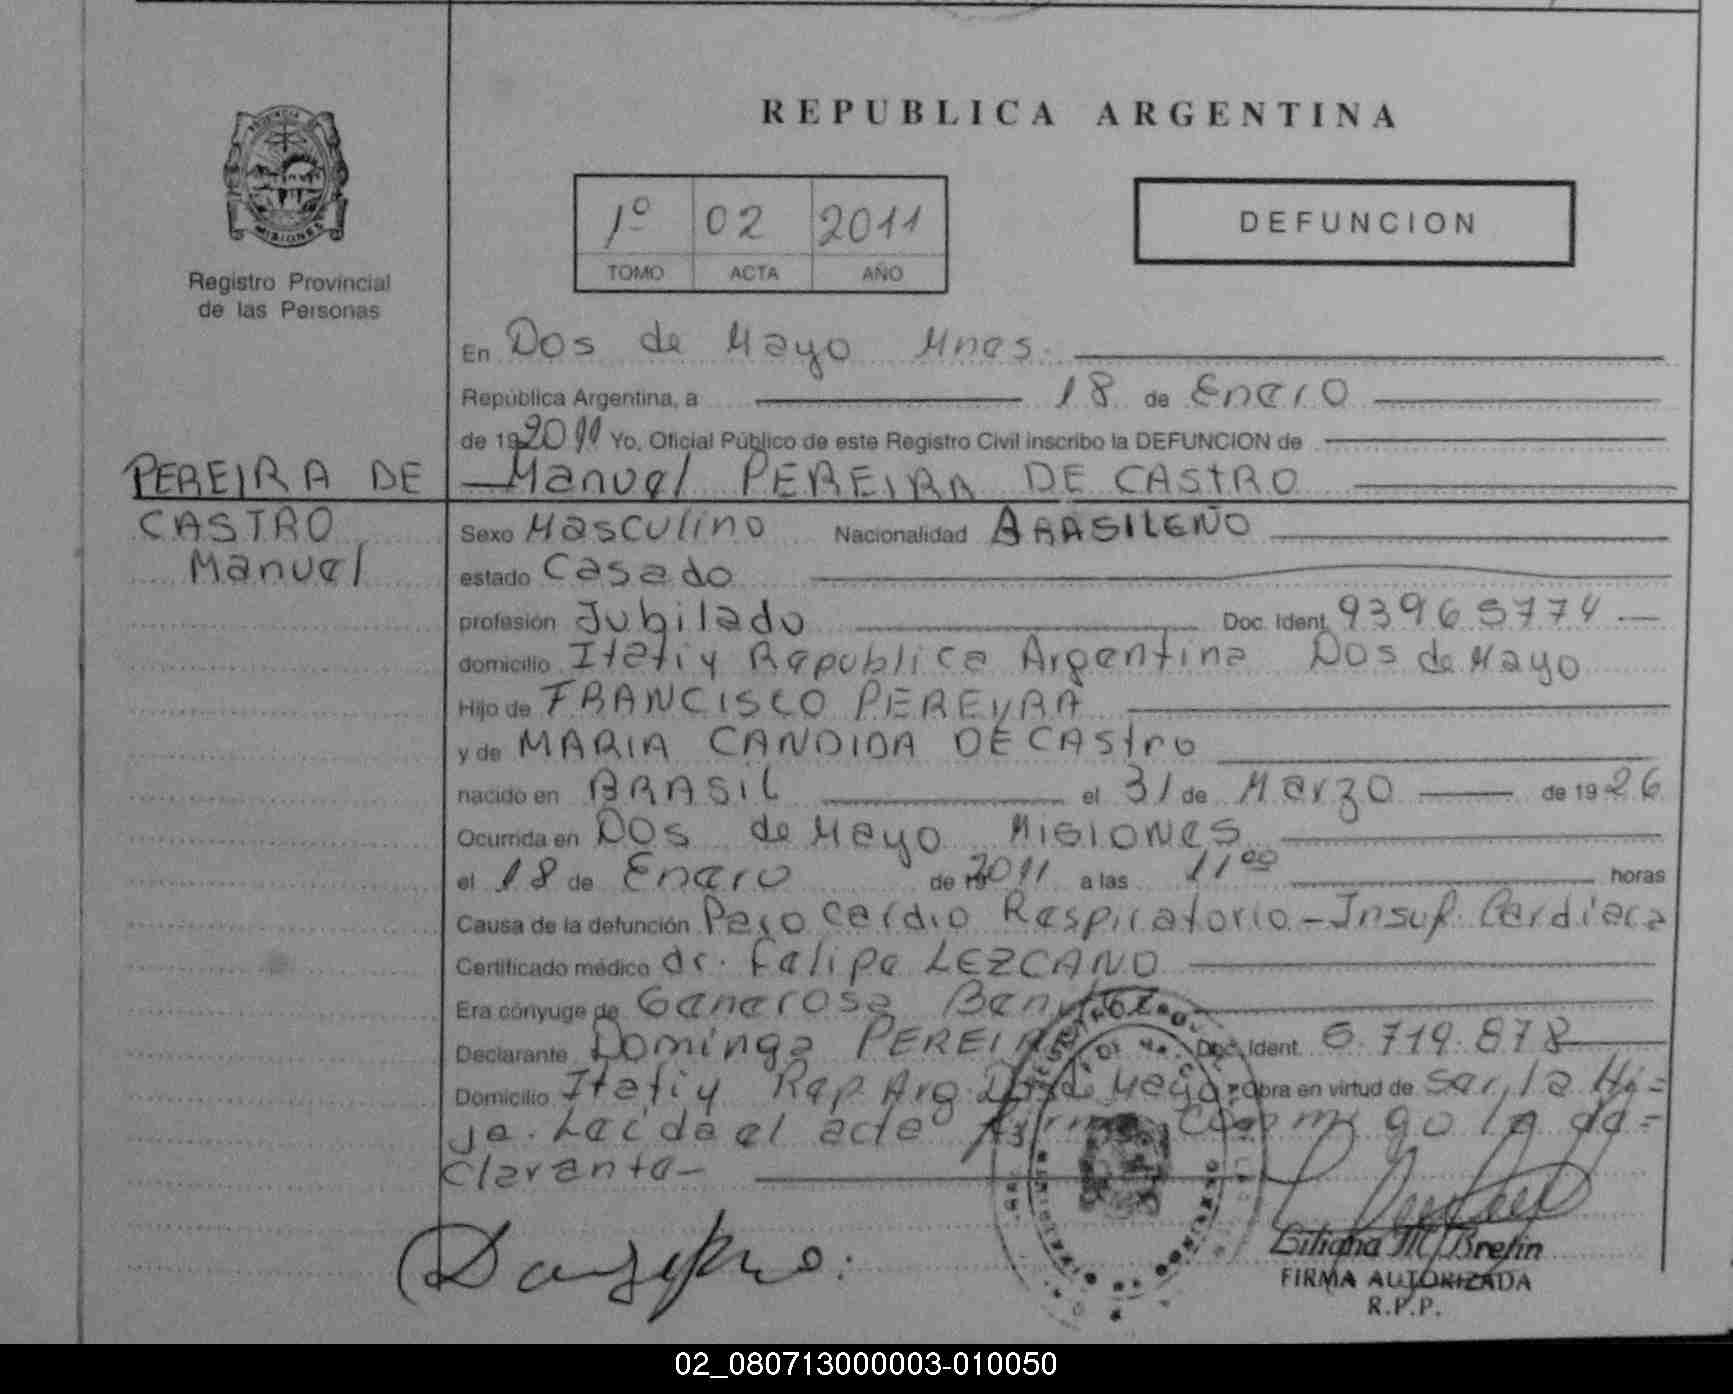 REPUBLICA ARGENTINA
PROVINCIA
MISIONES
Registro Provincial
de las Personas
1º 02 2011
TOMO ACTA AÑO
DEFUNCION
En Dos de Mayo Mnes.
República Argentina, a 18 de Enero
de 192011 Yo, Oficial Público de este Registro Civil inscribo la DEFUNCION de
PEREIRA DE
CASTRO
Manuel
Manuel PEREIRA DE CASTRO
Sexo Masculino Nacionalidad BRASILEÑO
estado Casado
profesión Jubilado Doc. Ident. 93965774
domicilio Itatiy Republica Argentina Dos de Mayo
Hijo de FRANCISCO PEREYRA
y de MARIA CANDIDA DE CAStro
nacido en BRASIL el 31 de Marzo de 1926
Ocurrida en DOS de Mayo MISIONES
el 18 de Enero de 192011 a las 11⁰⁰ horas
Causa de la defunción Paro Cardio Respiratorio - Insuf. Cardiaca
Certificado médico dr. Felipe LEZCANO
Era cónyuge de Generosa Benitez
Declarante Dominga PEREIRA Doc. Ident. 6.719.878
Domicilio Itatiy Rep. Arg. Dos de Mayo. Obra en virtud de ser, la Hi=
ja. Leida el acta firma conmigo la de=
clarante-
Liliana M. Brelin
FIRMA AUTORIZADA
R.P.P.
02_080713000003-010050